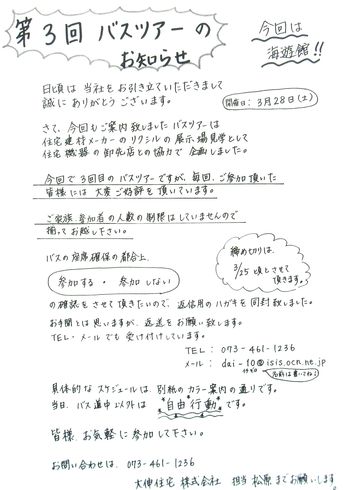 第3回 バスツアーの
お知らせ
今回は
海遊館!!
日頃は 当社をお引き立ていただきまして
誠に ありがとう ございます。
開催日: 3月28日(土)
さて、今回もご案内致しました バスツアーは
住宅建材メーカーの リクシルの 展示場見学として
住宅 機器の 卸先店との協力で 企画しました。
今回で 3回目の バスツアーですが、毎回、ご参加頂いた
皆様には 大変 ご好評を 頂いています。
ご家族、参加者の 人数の 制限は していませんので
揃って お越し下さい。
バスの 座席確保の 都合上、
参加する ・ 参加しない
締め切りは、
3/25 頃とさせて
頂きます。
の確認を させて 頂きたいので、返信用の ハガキを 同封致しました。
お手間とは 思いますが、返送を お願い致します。
TEL・メールでも 受け付けしています。
TEL: 073-461-1236
メール: dai-10@isis.ocn.ne.jp
イチゼロ
名前は書いてね♪
具体的な スケジュールは、別紙の カラー案内の 通りです。
当日、バス道中以外は 自由行動 です。
皆様、お気軽に 参加して下さい。
お問い合わせは、073-461-1236
大伸住宅 株式会社 担当 松原 までお願いします。